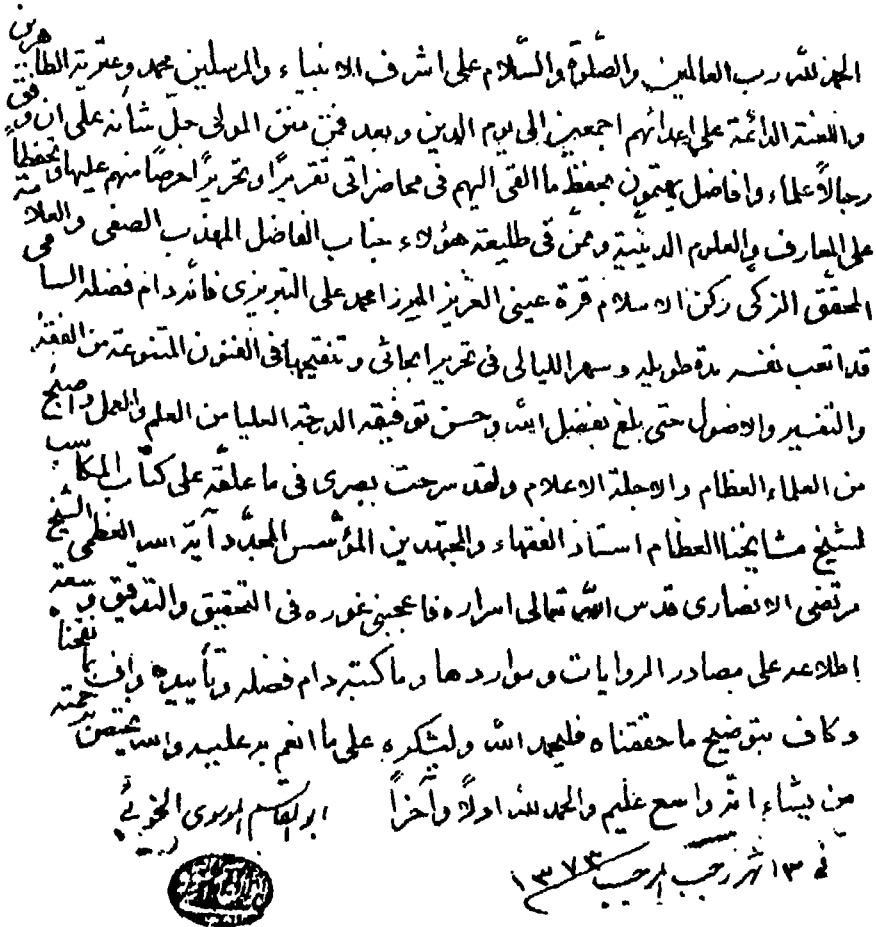 الحمد لله رب العالمين والصلوة والسلام على اشرف الانبياء والمرسلين محمد وعترته الطاهرين
واللعنة الدائمة على اعدائهم اجمعين الى يوم الدين وبعد فمن منن المولى جل شأنه على ان وفق
رجالاً علماء وافاضل يهتمون بحفظ ما القى اليهم في محاضراتي تقريراً وتحريراً حرصاً منهم عليها وتحفظاً
على المعارف والعلوم الدينية وممن في طليعة هؤلاء جناب الفاضل المهذب الصفي والعلامة
المحقق الزكي ركن الاسلام قرة عيني العزيز الميرزا محمد علي التبريزي فانه دام فضله السامي
قد اتعب نفسه مدة طويلة وسهر الليالي في تحرير ابحاثي وتنقيحها في الفنون المتنوعة من الفقه
والتفسير والاصول حتى بلغ بفضل الله وحسن توفيقه الدرجة العليا من العلم والعمل واصبح
من العلماء العظام والاجلة الاعلام ولقد سرحت بصري في ما علقه على كتاب المكاسب
لشيخ مشايخنا العظام استاذ الفقهاء والمجتهدين المؤسس المجدد آية الله العظمى الشيخ
مرتضى الانصاري قدس الله تعالى اسراره فاعجبني غوره في التحقيق والتدقيق وسعة
اطلاعه على مصادر الروايات ومواردها وما كتبه دام فضله وتأييده واف بما نقحنا
وكاف بتوضيح ما حققناه فليحمد الله وليشكره على ما انعم به عليه والله يختص برحمته
من يشاء انه واسع عليم والحمد لله اولاً وآخراً
ابو القاسم الموسوي الخوئي
في ١٣ شهر رجب المرجب ١٣٧٣